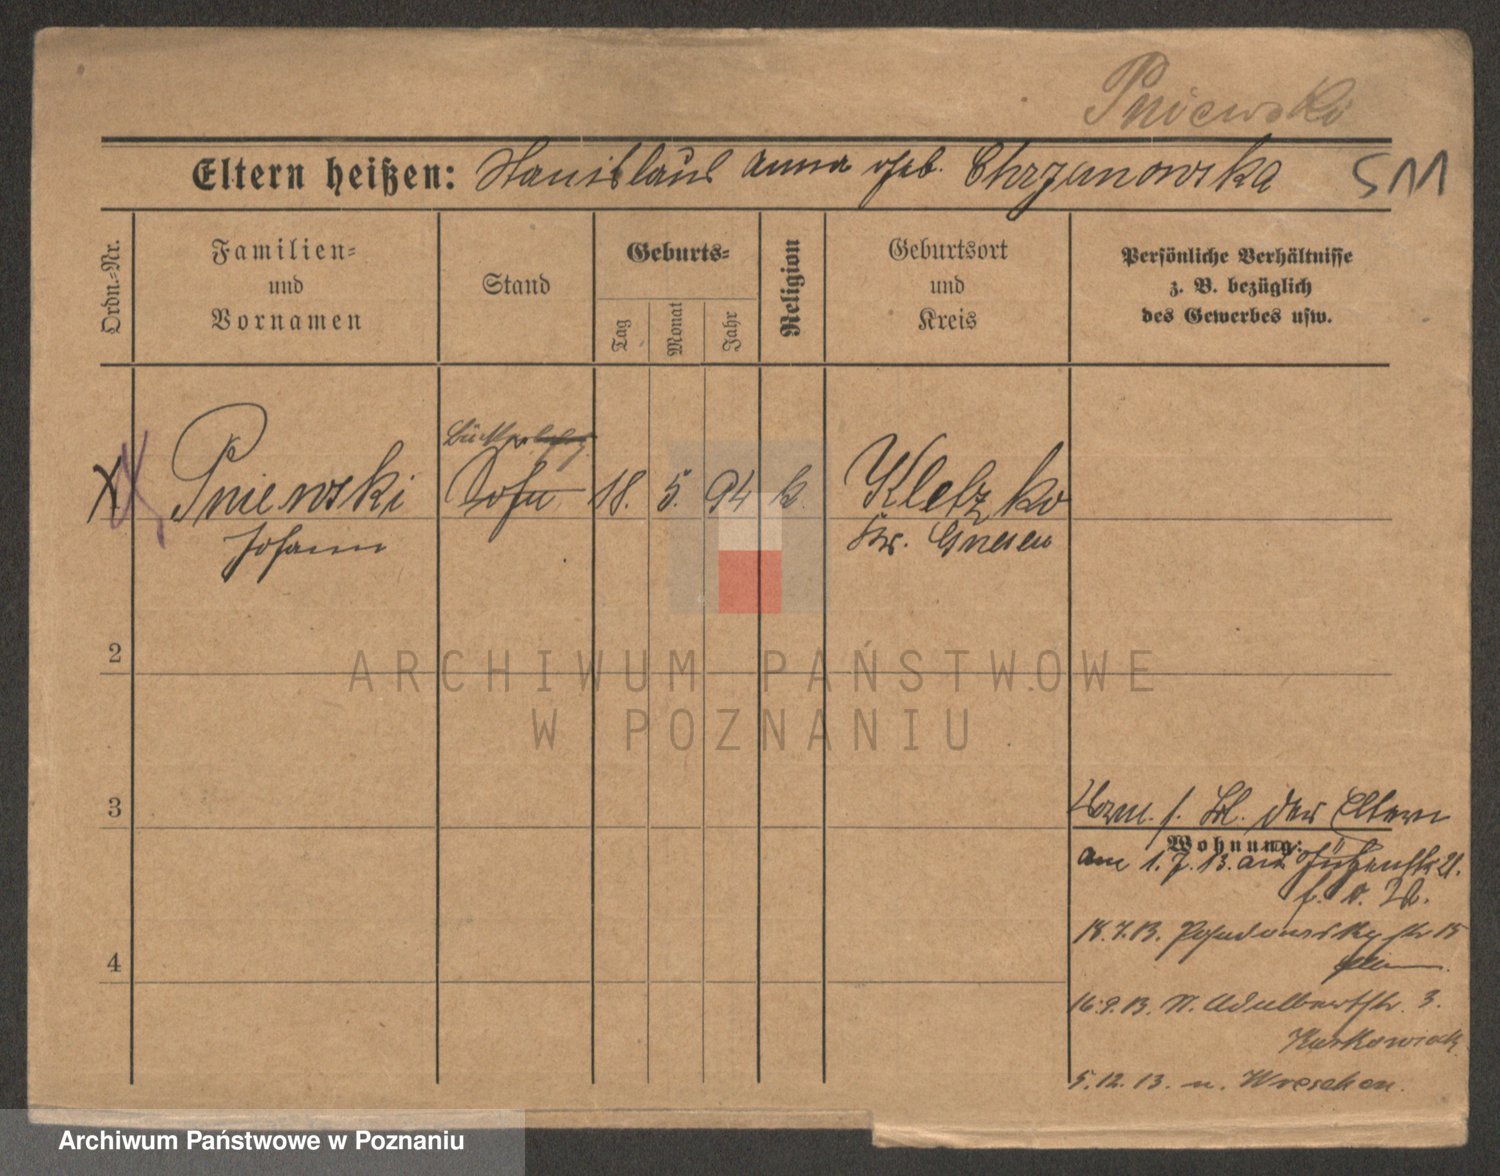 Pniewski
Eltern heißen: Stanislaus Anna geb. Chrzanowska 511
Ordn.-Nr.
Familien-
und
Vornamen
Stand
Geburts-
Tag
Monat
Jahr
Religion
Geburtsort
und
Kreis
Persönliche Verhältnisse
z. B. bezüglich
des Gewerbes usw.
Pniewski
Johann
Sohn
18. 5. 94 k.
Kletzko
Kr. Gnesen
2
3
4
ARCHIWUM PAŃSTWOWE
W POZNANIU
der Eltern
Wohnung:
am 1.7.13. aus 21.
18.7.13. 15
16.9.13. N. Adalbertstr. 3.
Kurkowiak
5.12.13. n. Wreschen.
Archiwum Państwowe w Poznaniu